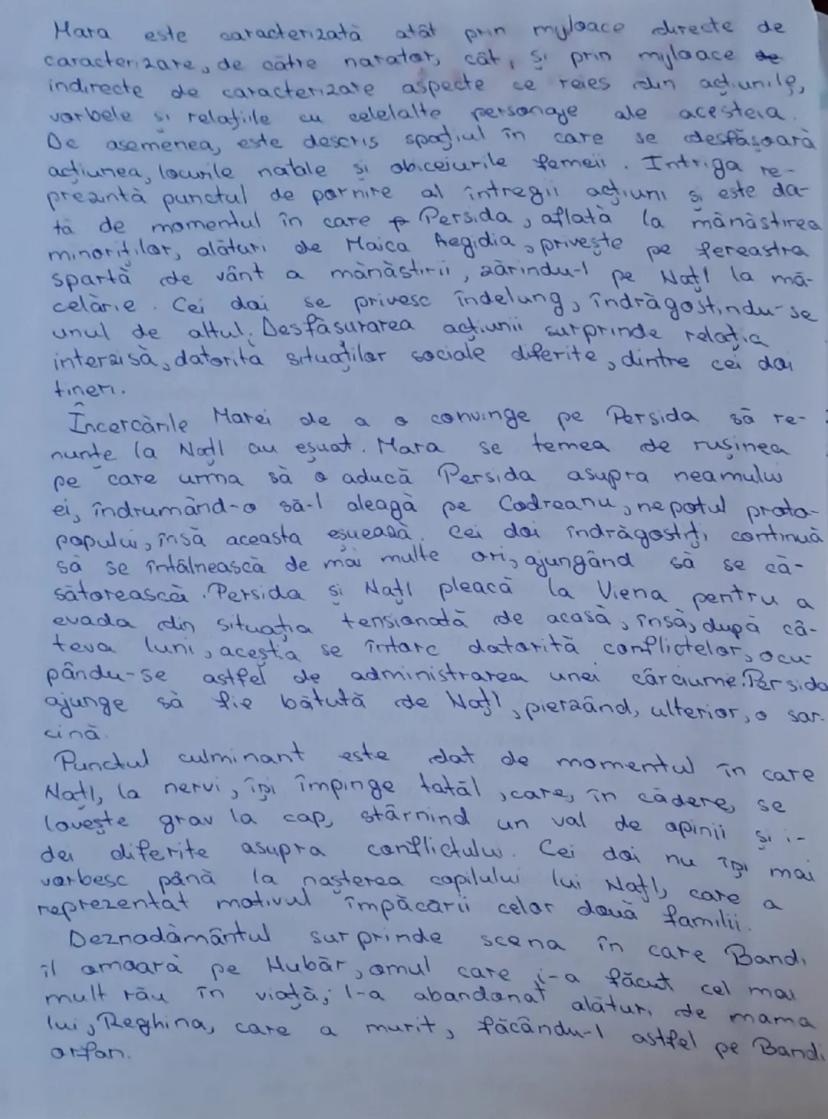 Mara este caracterizată atât prin myloace directe de
caracterizare, de către narator, cât, și prin myloace de
indirecte de caracterizare aspecte ce reies din acțiunile,
vorbele și relațiile cu celelalte personaje ale acesteia.
De asemenea, este descris spațiul în care se desfășoară
acțiunea, locurile natale și obiceiurile femeii. Intriga re-
prezintă punctul de pornire al întregii acțiuni și este da-
tă de momentul în care Persida, aflată la mănăstirea
minoriților, alături de Maica Aegidia, privește pe fereastra
spartă de vânt a mănăstirii, zărindu-l pe Națl la mă-
celărie. Cei doi se privesc îndelung, îndrăgostindu-se
unul de altul. Desfășurarea acțiunii surprinde relația
interzisă, datorită situaților sociale diferite, dintre cei doi
tineri.
Încercările Marei de a o convinge pe Persida să re-
nunțe la Națl au eșuat. Mara se temea de rușinea
pe care urma să o aducă Persida asupra neamului
ei, îndrumând-o să-l aleagă pe Codreanu, nepotul proto-
popului, însă aceasta eșuează. Cei doi îndrăgostiți continuă
să se întâlnească de mai multe ori, ajungând să se că-
sătorească. Persida și Națl pleacă la Viena pentru a
evada din situația tensionată de acasă, însă, după câ-
teva luni, aceștia se întorc datorită conflictelor, ocu-
pându-se astfel de administrarea unei cârciume. Persida
ajunge să fie bătută de Națl, pierzând, ulterior, o sar-
cină.
Punctul culminant este dat de momentul în care
Națl, la nervi, își împinge tatăl, care, în cădere, se
lovește grav la cap, stârnind un val de opinii și i-
dei diferite asupra conflictului. Cei doi nu își mai
vorbesc până la nașterea copilului lui Națl, care a
reprezentat motivul împăcării celor două familii.
Deznadământul surprinde scena în care Bandi
îl omoară pe Hubăr, omul care i-a făcut cel mai
mult rău în viață; l-a abandonat alături de mama
lui, Reghina, care a murit, făcându-l astfel pe Bandi
orfan.